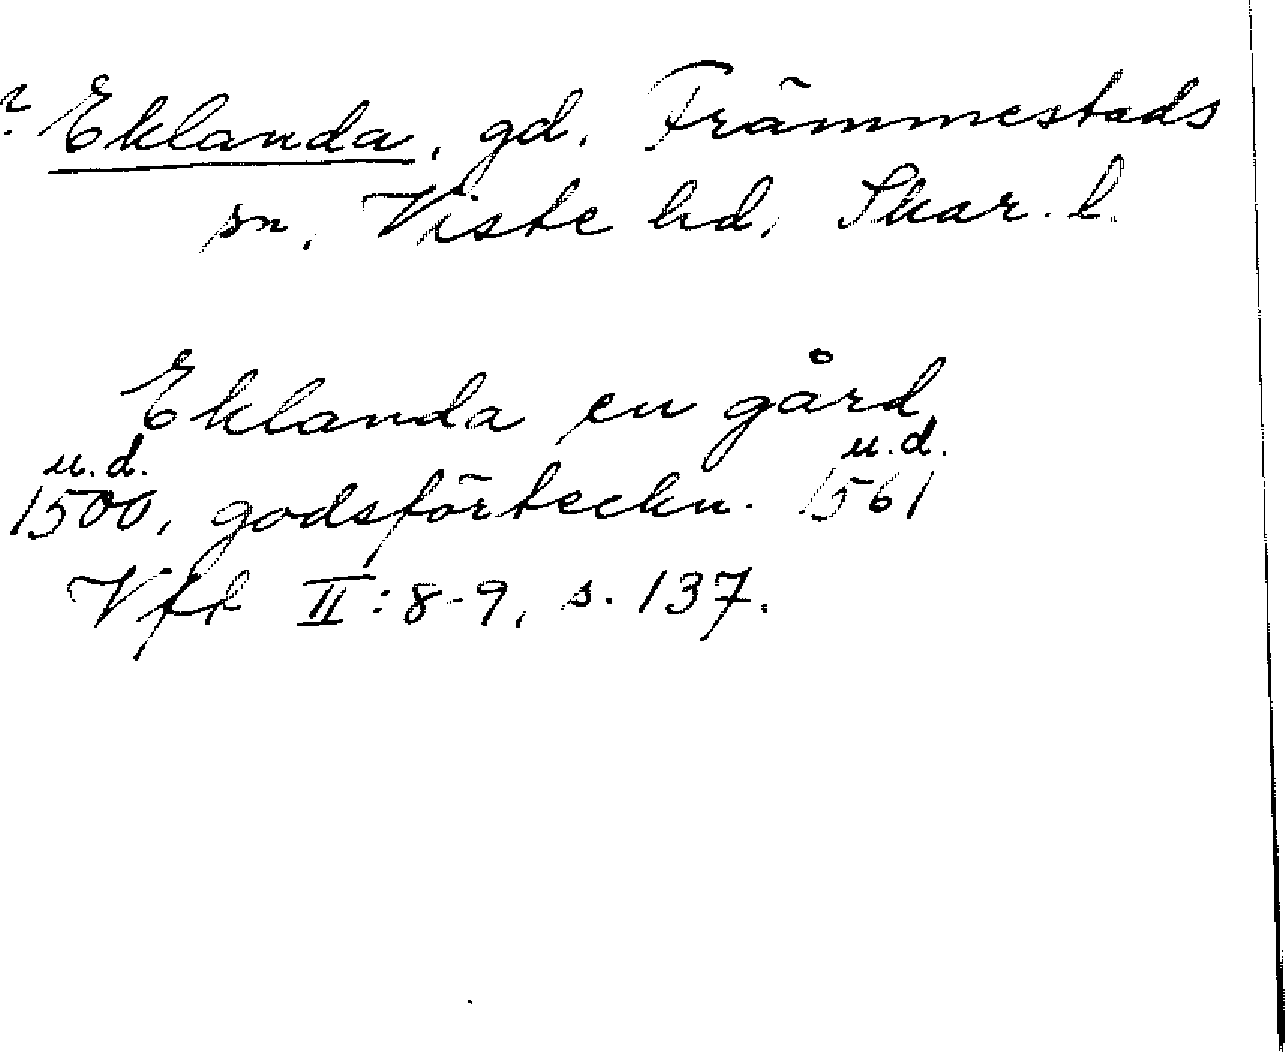 ? Eklanda, gd. Främmestads
sn, Viste hd, Skar. l.
Eklanda en gård
u.d. u.d.
1500, godsförteckn. 1561
Vft II:8-9, s. 137.